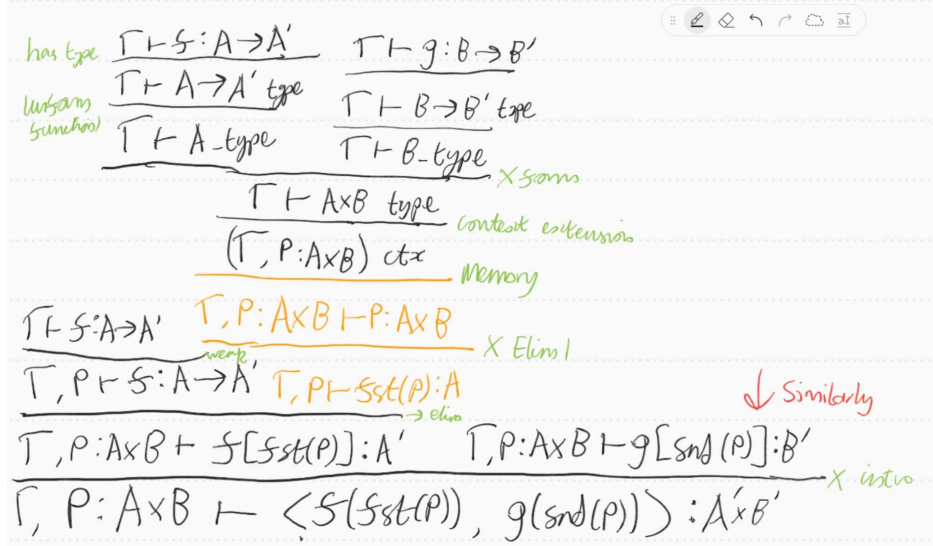 has type Γ ⊢ f : A → A' Γ ⊢ g : B → B'
Γ ⊢ A → A' type Γ ⊢ B → B' type
Γ ⊢ A_type Γ ⊢ B_type
X form
Γ ⊢ A×B type
context extension
(Γ, P : A×B) ctx
Memory
Γ ⊢ f : A → A' Γ, P : A×B ⊢ P : A×B
weak X Elim 1
Γ, P ⊢ f : A → A' Γ, P ⊢ fst(P) : A
→ elim
↓ Similarly
Γ, P : A×B ⊢ f[fst(P)] : A' Γ, P : A×B ⊢ g[snd(P)] : B'
X intro
Γ, P : A×B ⊢ ⟨f(fst(P)), g(snd(P))⟩ : A'×B'